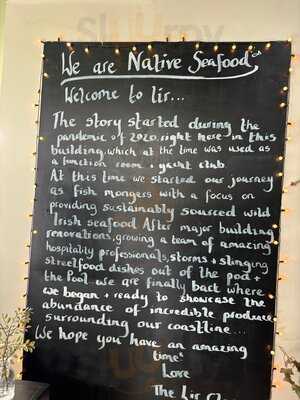 We are Native Seafood
Welcome to lír...
The story started during the
pandemic of 2020, right here in this
building, which at the time was used as
a function room + yacht club.
At this time we started our journey
as fish mongers with a focus on
providing sustainably sourced wild
Irish seafood After major building
renovations, growing a team of amazing
hospitality professionals, storms + slinging
streetfood dishes out of the pod +
the pool we are finally back where
we began + ready to showcase the
abundance of incredible produce
surrounding our coastline...
We hope you have an amazing
time
Love
The Lír